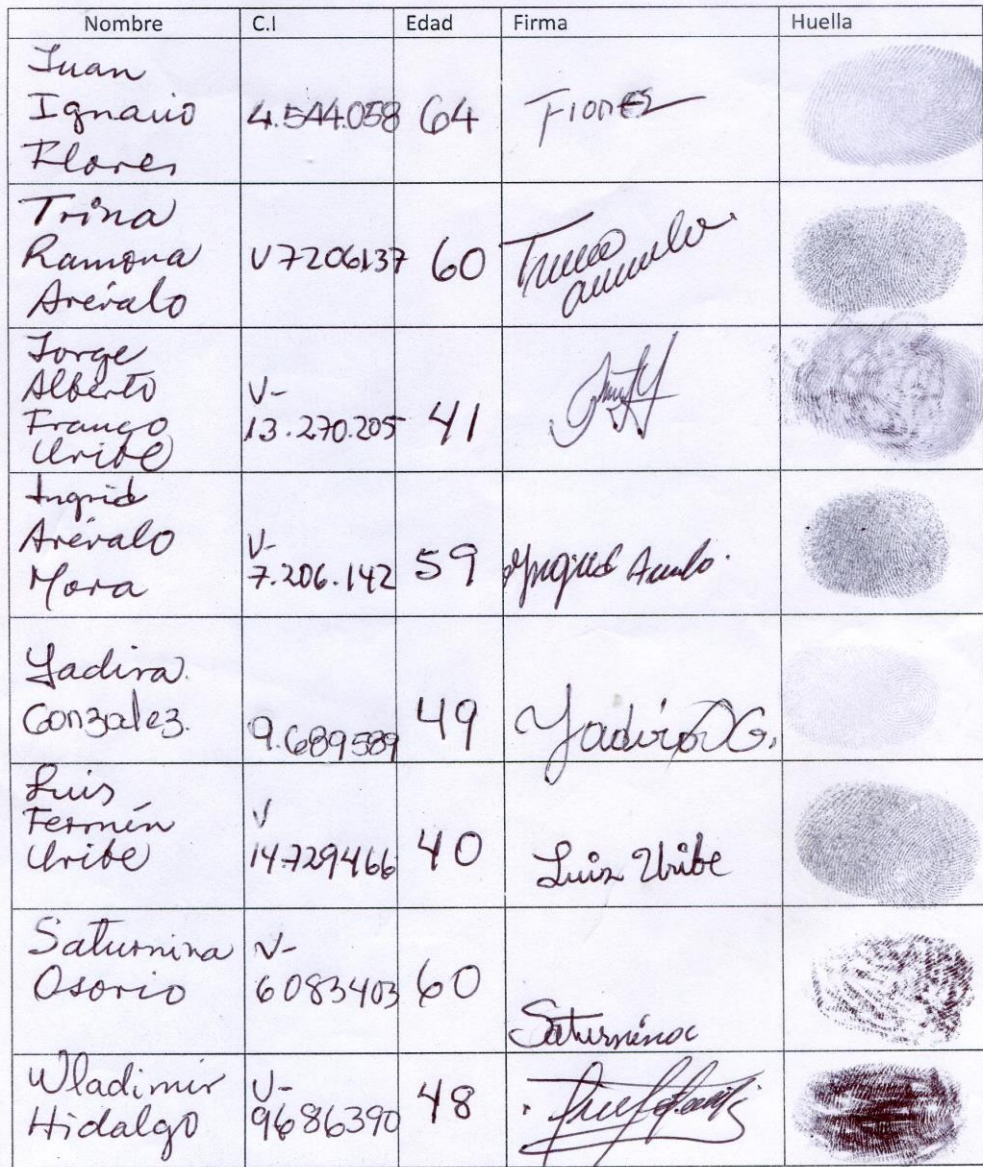 Nombre C.I Edad Firma Huella
Juan
Ignacio 4.544.058 64 Flores
Flores
Trina
Ramona V7206137 60 Trina
Arévalo
Jorge
Alberto V-
Franco 13.270.205 41
Uribe
Ingrid
Arévalo V-
Mora 7.206.142 59 Yngrid
Yadira.
Gonzalez. 9.689589 49 Yadira G.
Luis
Fermín V
Uribe 14729466 40 Luis Uribe
Saturnina V-
Osorio 6083403 60
Saturnina
Wladimir V-
Hidalgo 9686390 48